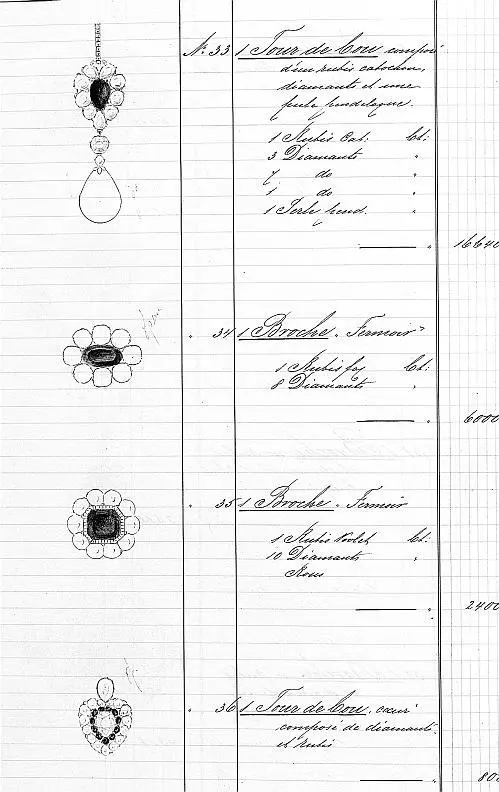 N° 33 1 Tour de Cou composé
d'un rubis cabochon,
diamants et une
perle pendeloque.
1 Rubis Cab: Ct:
3 Diamants "
7 do "
1 do "
1 Perle pend. "
" 16640
" 34 1 Broche " Fermoir
1 Rubis Ct:
8 Diamants "
" 6000
" 35 1 Broche " Fermoir
1 Rubis Ct:
10 Diamants "
Roses
" 2400
" 36 1 Tour de Cou, cœur
composé de diamants
et rubis
" 80